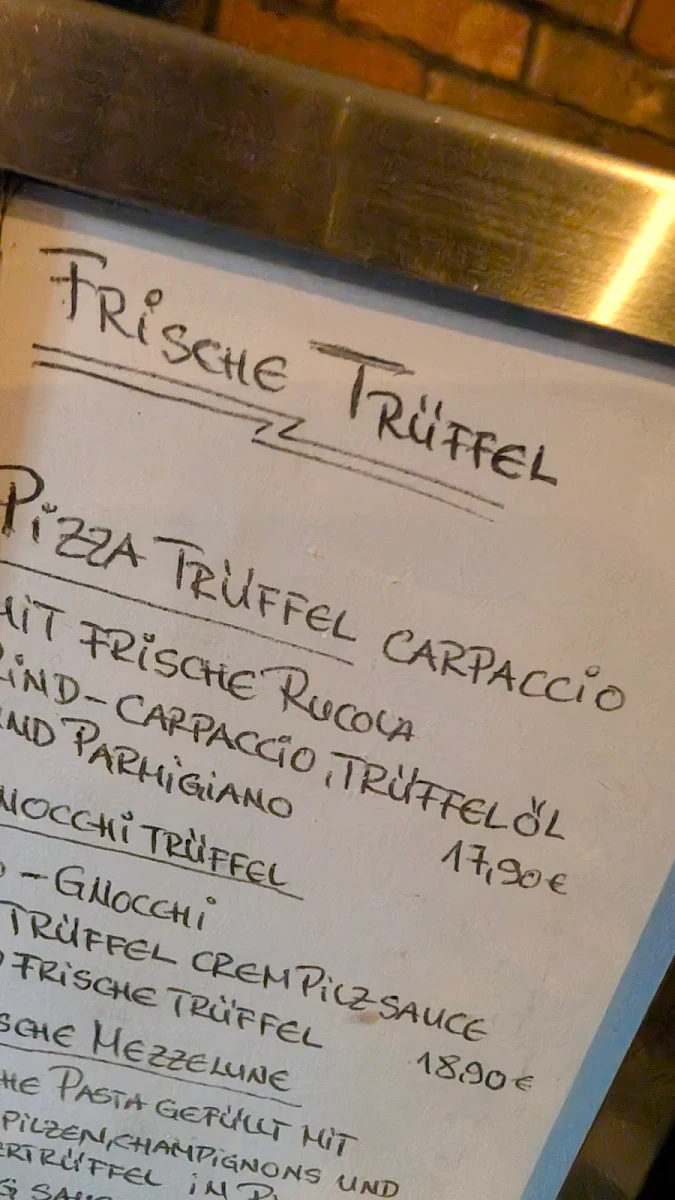 FRISCHE TRÜFFEL
PIZZA TRÜFFEL CARPACCIO
MIT FRISCHE RUCOLA
RIND-CARPACCIO, TRÜFFELÖL
ND PARMIGIANO
17,90€
NOCCHI TRÜFFEL
-GNOCCHI
TRÜFFEL CREMPILZSAUCE
FRISCHE TRÜFFEL
18,90€
SCHE MEZZELUNE
HE PASTA GEFÜLLT MIT
PILZEN, CHAMPIGNONS UND
ERTRÜFFEL IN